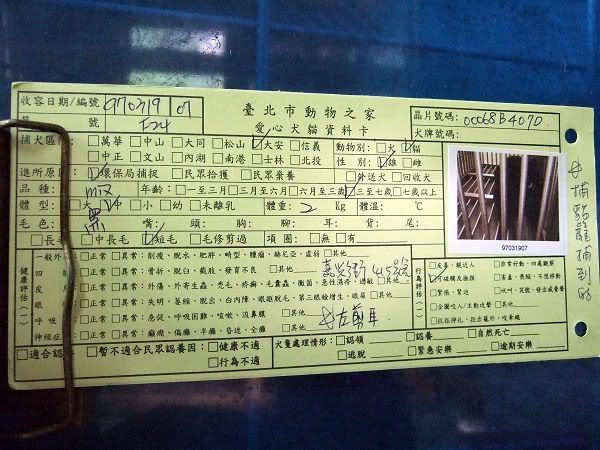 收容日期/編號 970719 07
號 F24
臺北市動物之家
愛心犬貓資料卡
晶片號碼: 00068B407D
犬牌號碼:
捕犬區隊: □萬華 □中山 □大同 □松山 ☑大安 □信義
□中正 □文山 □內湖 □南港 □士林 □北投
動物別: □犬 ☑貓
性別: ☑雄 □雌
進所原因: ☑環保局捕捉 □民眾拾獲 □民眾棄養 □外送犬 □回收犬
品種: mix 年齡: □一至三月 □三月至六月 □六月至三歲 ☑三至七歲 □七歲以上
體型: □大 ☑中 □小 □幼 □未離乳 體重: 2 Kg 體溫: ℃
毛色: 黑 嘴: 頭: 胸: 腳: 耳: 背: 尾:
□長毛 □中長毛 ☑短毛 □毛修剪過 項圈: □無 □有:
97031907
健康評估(一)
一般外 □正常 □異常: 削瘦、脫水、肥胖、畸型、腫瘤、赫尼亞、虛弱 □其他
四肢 □正常 □異常: 骨折、脫臼、截肢、發育不良 □其他
皮 □正常 □異常: 外傷、外寄生蟲、禿毛、疥癬、毛囊蟲、黴菌、急性濕疹、過敏 □其他
眼 □正常 □異常: 失明、萎縮、脫出、白內障、眼瞼脫毛、第三眼瞼增生、眼屎 □其他
呼吸 □正常 □異常: 急促、呼吸困難、咳嗽、流鼻膿 □其他
神經症 □正常 □異常: 癲癇、偏癱、半癱、昏迷、全癱 □其他
左剪耳
行為評估(二)
□友善、親近人 □非常好動、四處觀察
□緊張、緊迫 □吠叫、哭號、發出威脅聲
□適合認養 □暫不適合民眾認養因: □健康不適
□行為不適
犬隻處理情形: □認領 □認養 □自然死亡
□逃脫 □緊急安樂 □逾期安樂